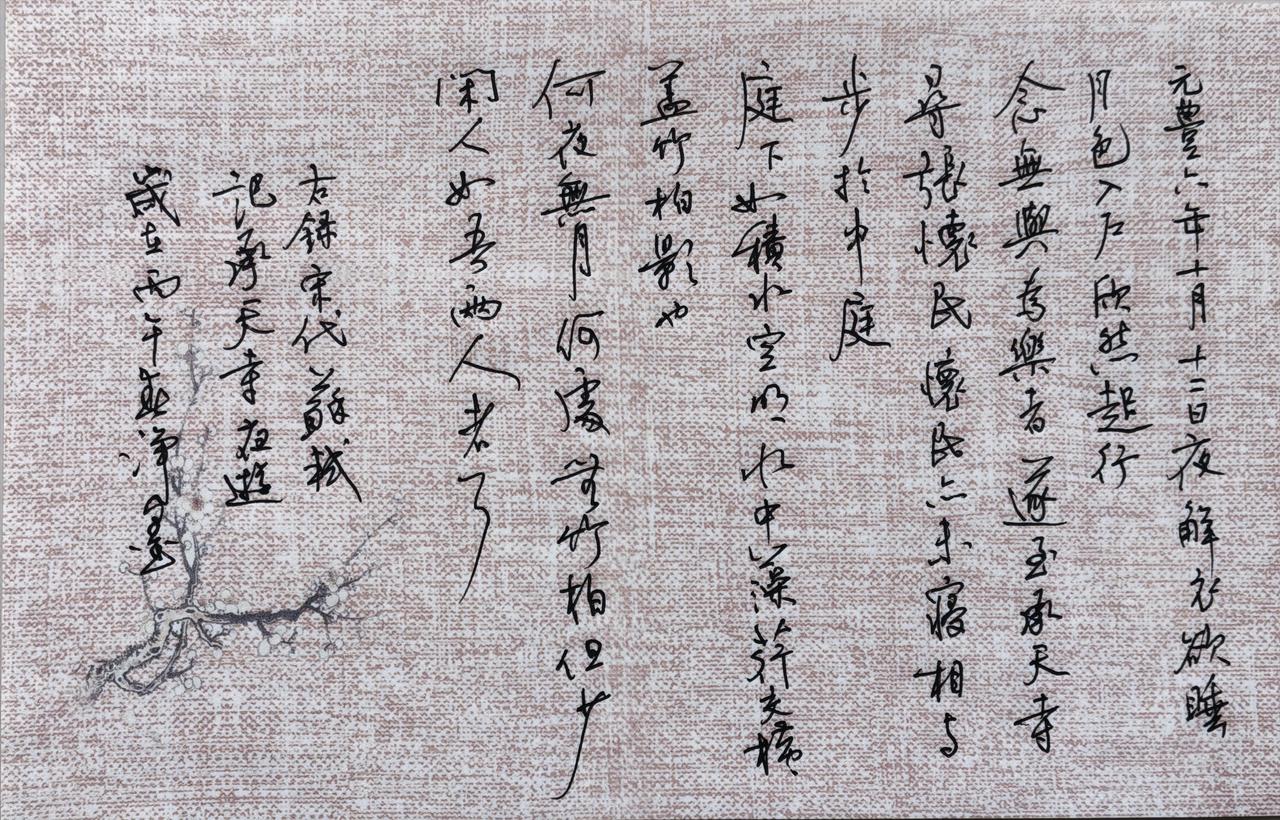 元豐六年十月十二日夜解衣欲睡
月色入戶欣然起行
念無與為樂者遂至承天寺
尋張懷民懷民亦未寢相与
步於中庭
庭下如積水空明水中藻荇交橫
蓋竹柏影也
何夜無月何處無竹柏但少
閑人如吾兩人者了
右錄宋代蘇軾
記承天寺夜遊
歲在丙午春淨